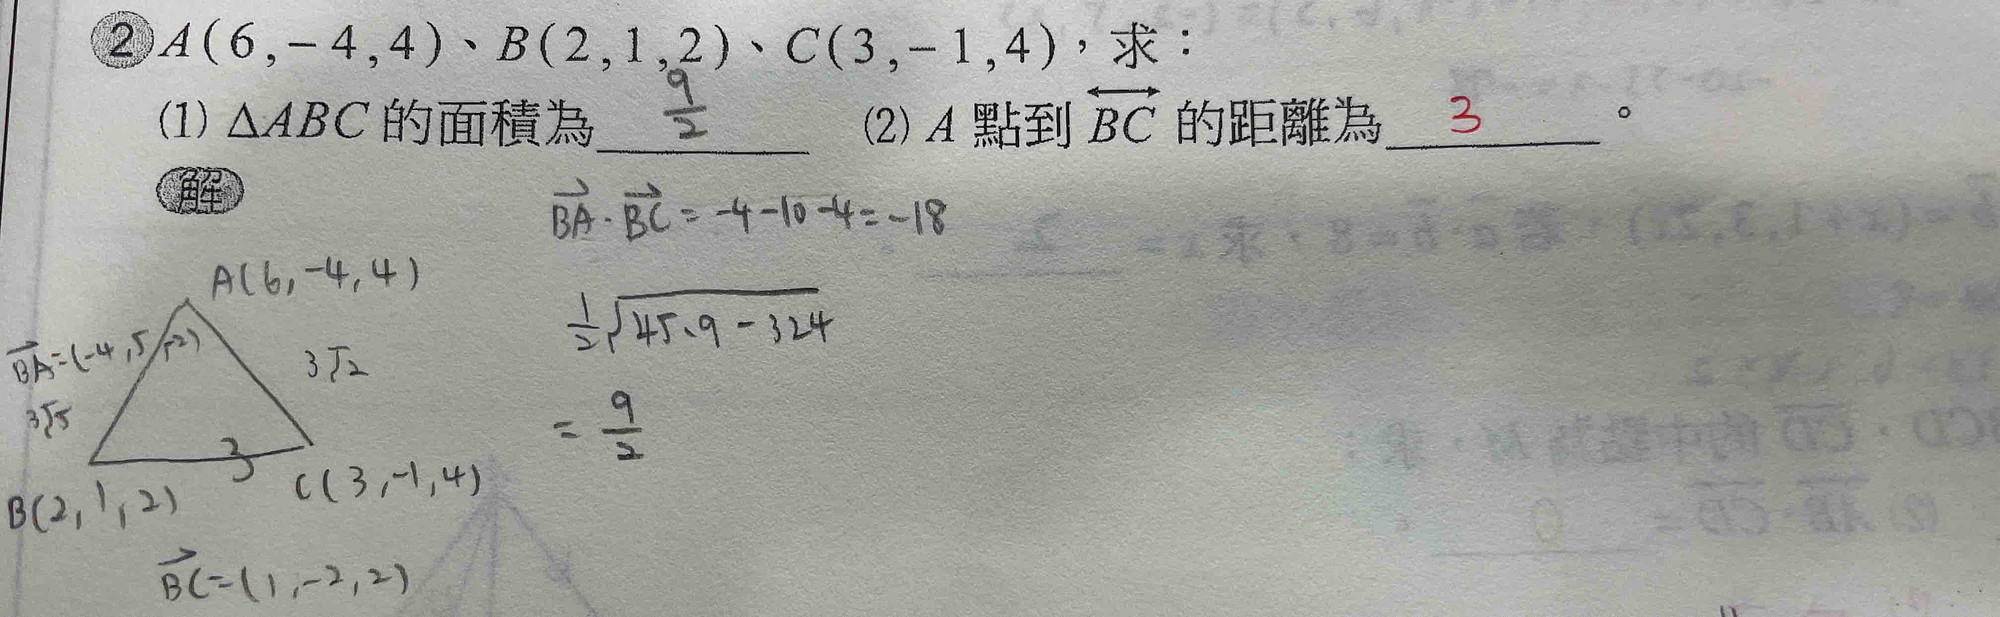 ② A(6,−4,4)、B(2,1,2)、C(3,−1,4),求:
(1) ΔABC 的面積為 9/2 (2) A 點到 BC 的距離為 3 。
解
BA·BC = -4-10-4 = -18
A(6,-4,4)
1/2√45·9-324
BA=(-4,5,-2)
3√2
3√5
= 9/2
3
C(3,-1,4)
B(2,1,2)
BC=(1,-2,2)